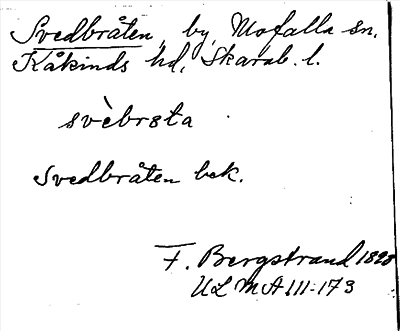 Svedbråten, by, Mofalla sn,
Kåkinds hd, Skarab. l.
svèbrɷta
Svedbråten bek.
F. Bergstrand 1898
ULMA 111:173